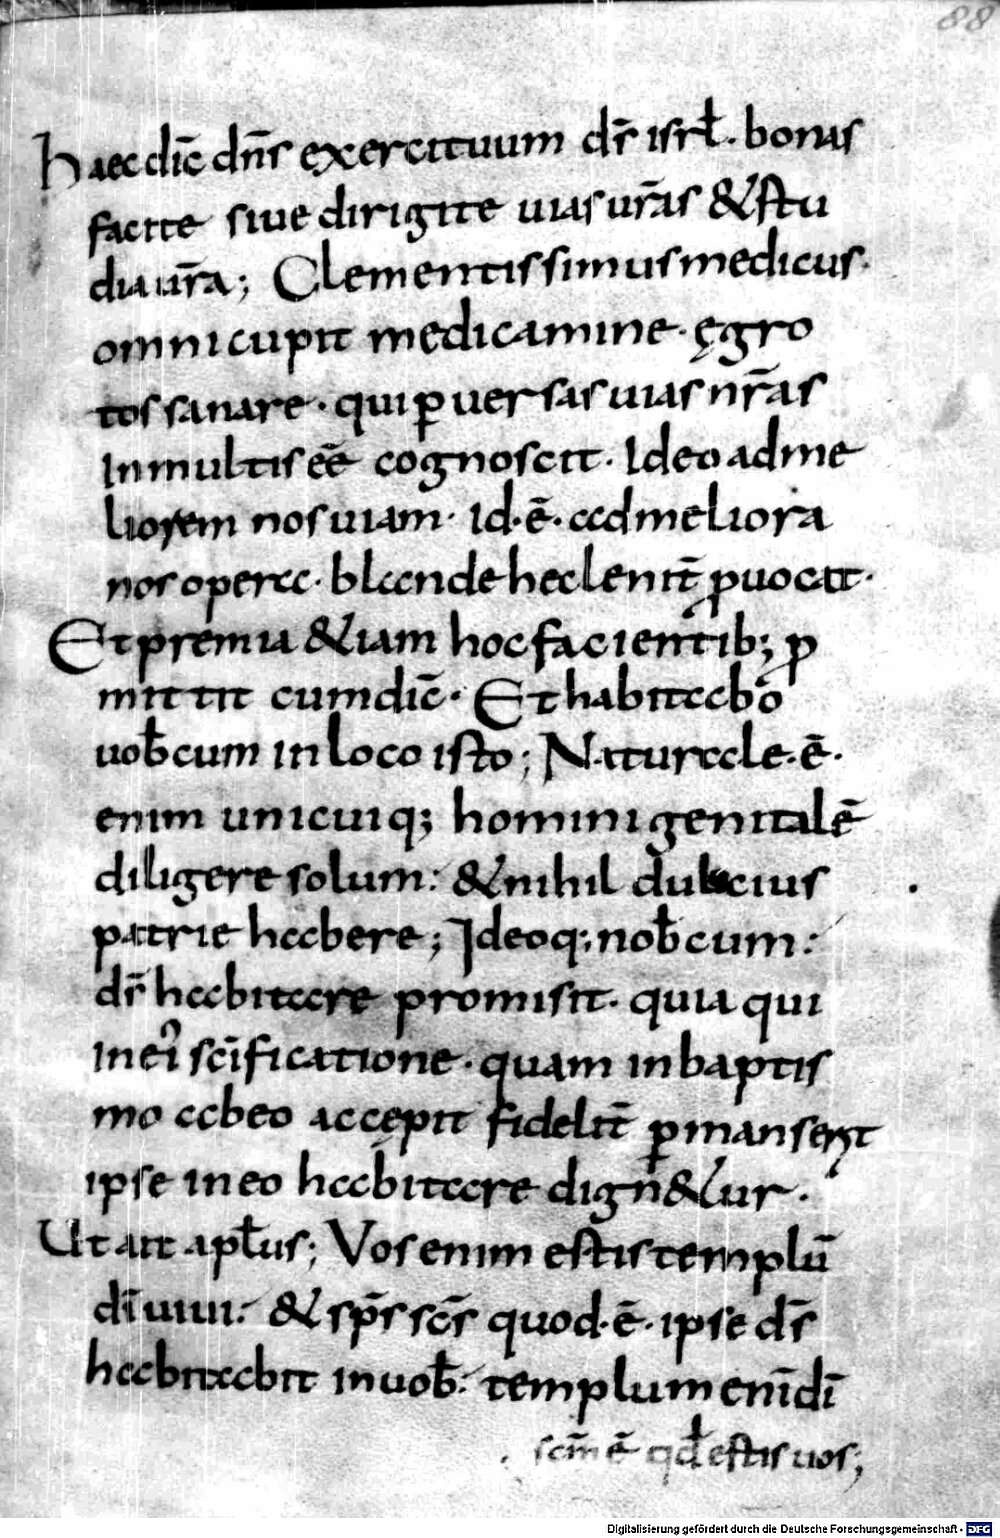 88
Haec dic̄ dn̄s exercituum ds̄ isrl̄. bonas
facite siue dirigite uias ur̄as & stu
dia ur̄a; Clementissimus medicus.
omni cupit medicamine. ęgro
tos sanare. qui ꝑuersas uias nr̄as
In multis eē cognoscit. Ideo ad me
liorem nos uiam. Id.ē. ad meliora
nos opera. blande he clenit̄ ꝓuocat.
Et premia &iam hoc facientib; ꝓ
mittit cum dic̄. Et habitabo
uob̄cum in loco isto; Naturale.ē.
enim unicuiq; homini genitalē
diligere solum: & nihil dulcius
patrie habere; Ideoq; nob̄cum:
ds̄ habitare promisit. quia qui
in ei' sc̄ificatione. quam in baptis
mo ab eo accępit fidelit̄ ꝑmanserit
ipse in eo habitare dign&ur.
Ut ait apl̄us; Vos enim estis templū
dī uiui: & sp̄s sc̄s quod.ē. ipse ds̄
habitabit in uob̄: templum enī dī
sc̄m ē qd̄ estis uos;
Digitalisierung gefördert durch die Deutsche Forschungsgemeinschaft - DFG